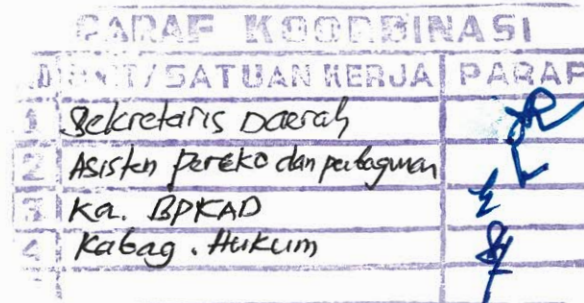 PARAF KOORDINASI
UNIT/SATUAN KERJA PARAF
1 Sekretaris Daerah
2 Asisten pereko dan
3 Ka. BPKAD
4 Kabag. Hukum